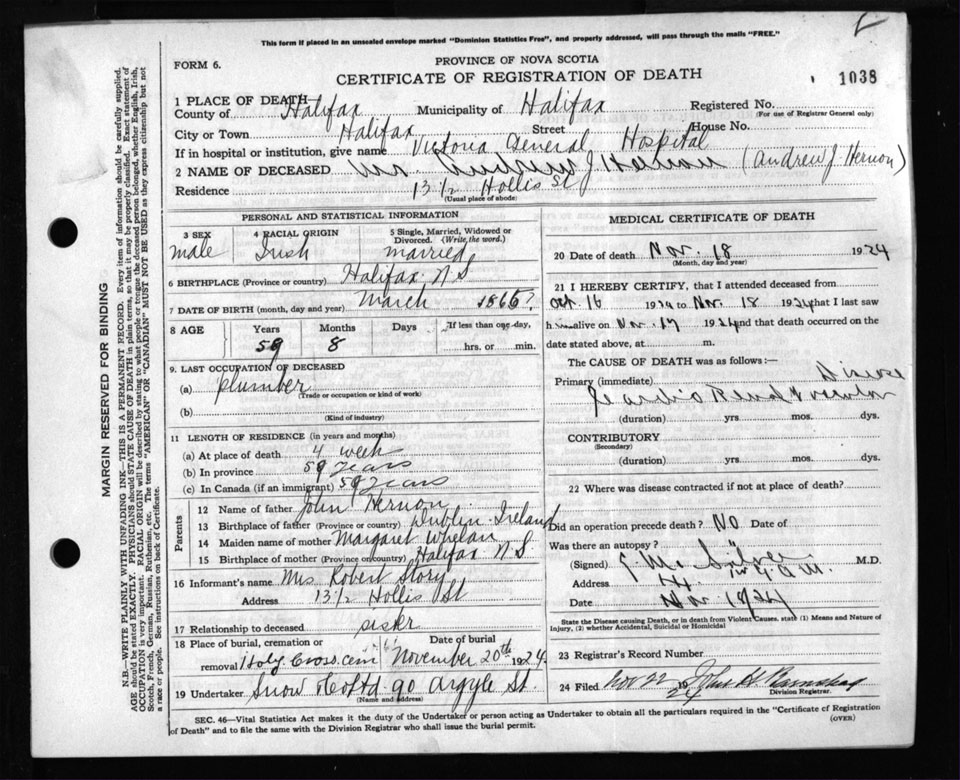 This form if placed in an unsealed envelope marked "Dominion Statistics Free", and properly addressed, will pass through the mails "FREE."
FORM 6.
PROVINCE OF NOVA SCOTIA
CERTIFICATE OF REGISTRATION OF DEATH
1038
1 PLACE OF DEATH
County of Halifax Municipality of Halifax Registered No.
(For use of Registrar General only)
City or Town Halifax Street House No.
If in hospital or institution, give name Victoria General Hospital
2 NAME OF DECEASED Mr. Andrew J Hernon (Andrew J. Hernon)
Residence 13 1/2 Hollis St
(Usual place of abode)
PERSONAL AND STATISTICAL INFORMATION
3 SEX male
4 RACIAL ORIGIN Irish
5 Single, Married, Widowed or Divorced. (Write the word.) married
6 BIRTHPLACE (Province or country) Halifax N.S
7 DATE OF BIRTH (month, day and year) March 1865?
8 AGE Years Months Days If less than one day,
59 8 hrs. or min.
9. LAST OCCUPATION OF DECEASED
(a) plumber
(Trade or occupation or kind of work)
(b)
(Kind of industry)
11 LENGTH OF RESIDENCE (in years and months)
(a) At place of death 4 week
(b) In province 59 years
(c) In Canada (if an immigrant) 59 years
Parents
12 Name of father John Hernon
13 Birthplace of father (Province or country) Dublin Ireland
14 Maiden name of mother Margaret Whelan
15 Birthplace of mother (Province or country) Halifax N S
16 Informant's name Mrs Robert Story
Address 13 1/2 Hollis St
17 Relationship to deceased sister
18 Place of burial, cremation or removal Holy Cross cem
Date of burial November 20th 1924.
19 Undertaker Snow & Co Ltd 90 Argyle St.
(Name and address)
MEDICAL CERTIFICATE OF DEATH
20 Date of death Nov. 18 1924
(Month, day and year)
21 I HEREBY CERTIFY, that I attended deceased from
Oct. 16 1924 to Nov. 18 1924 that I last saw
him alive on Nov. 17 1924 and that death occurred on the
date stated above, at m.
The CAUSE OF DEATH was as follows:—
Primary (immediate) Disease
Cardio Renal
(duration) yrs. mos. dys.
CONTRIBUTORY
(Secondary)
(duration) yrs. mos. dys.
22 Where was disease contracted if not at place of death?
Did an operation precede death? No Date of
Was there an autopsy?
(Signed) Silver M.D.
Address
Date Nov. 1924
State the Disease causing Death, or in death from Violent Causes, state (1) Means and Nature of
Injury, (2) whether Accidental, Suicidal or Homicidal
23 Registrar's Record Number
24 Filed Nov 22 24 John A
Division Registrar.
SEC. 46—Vital Statistics Act makes it the duty of the Undertaker or person acting as Undertaker to obtain all the particulars required in the "Certificate of Registration
of Death" and to file the same with the Division Registrar who shall issue the burial permit.
(OVER)
MARGIN RESERVED FOR BINDING
N.B.—WRITE PLAINLY WITH UNFADING INK—THIS IS A PERMANENT RECORD. Every item of information should be carefully supplied.
AGE should be stated EXACTLY. PHYSICIANS should STATE CAUSE OF DEATH in plain terms, so that it may be properly classified. Exact statement of
OCCUPATION is very important. RACIAL ORIGIN will be described by stating to what people or tongue the deceased person belonged, whether English, Irish,
Scotch, French, German, Russian, Ruthenian, etc. The terms "AMERICAN" OR "CANADIAN" MUST NOT BE USED as they express citizenship but not
a race or people. See instructions on back of Certificate.